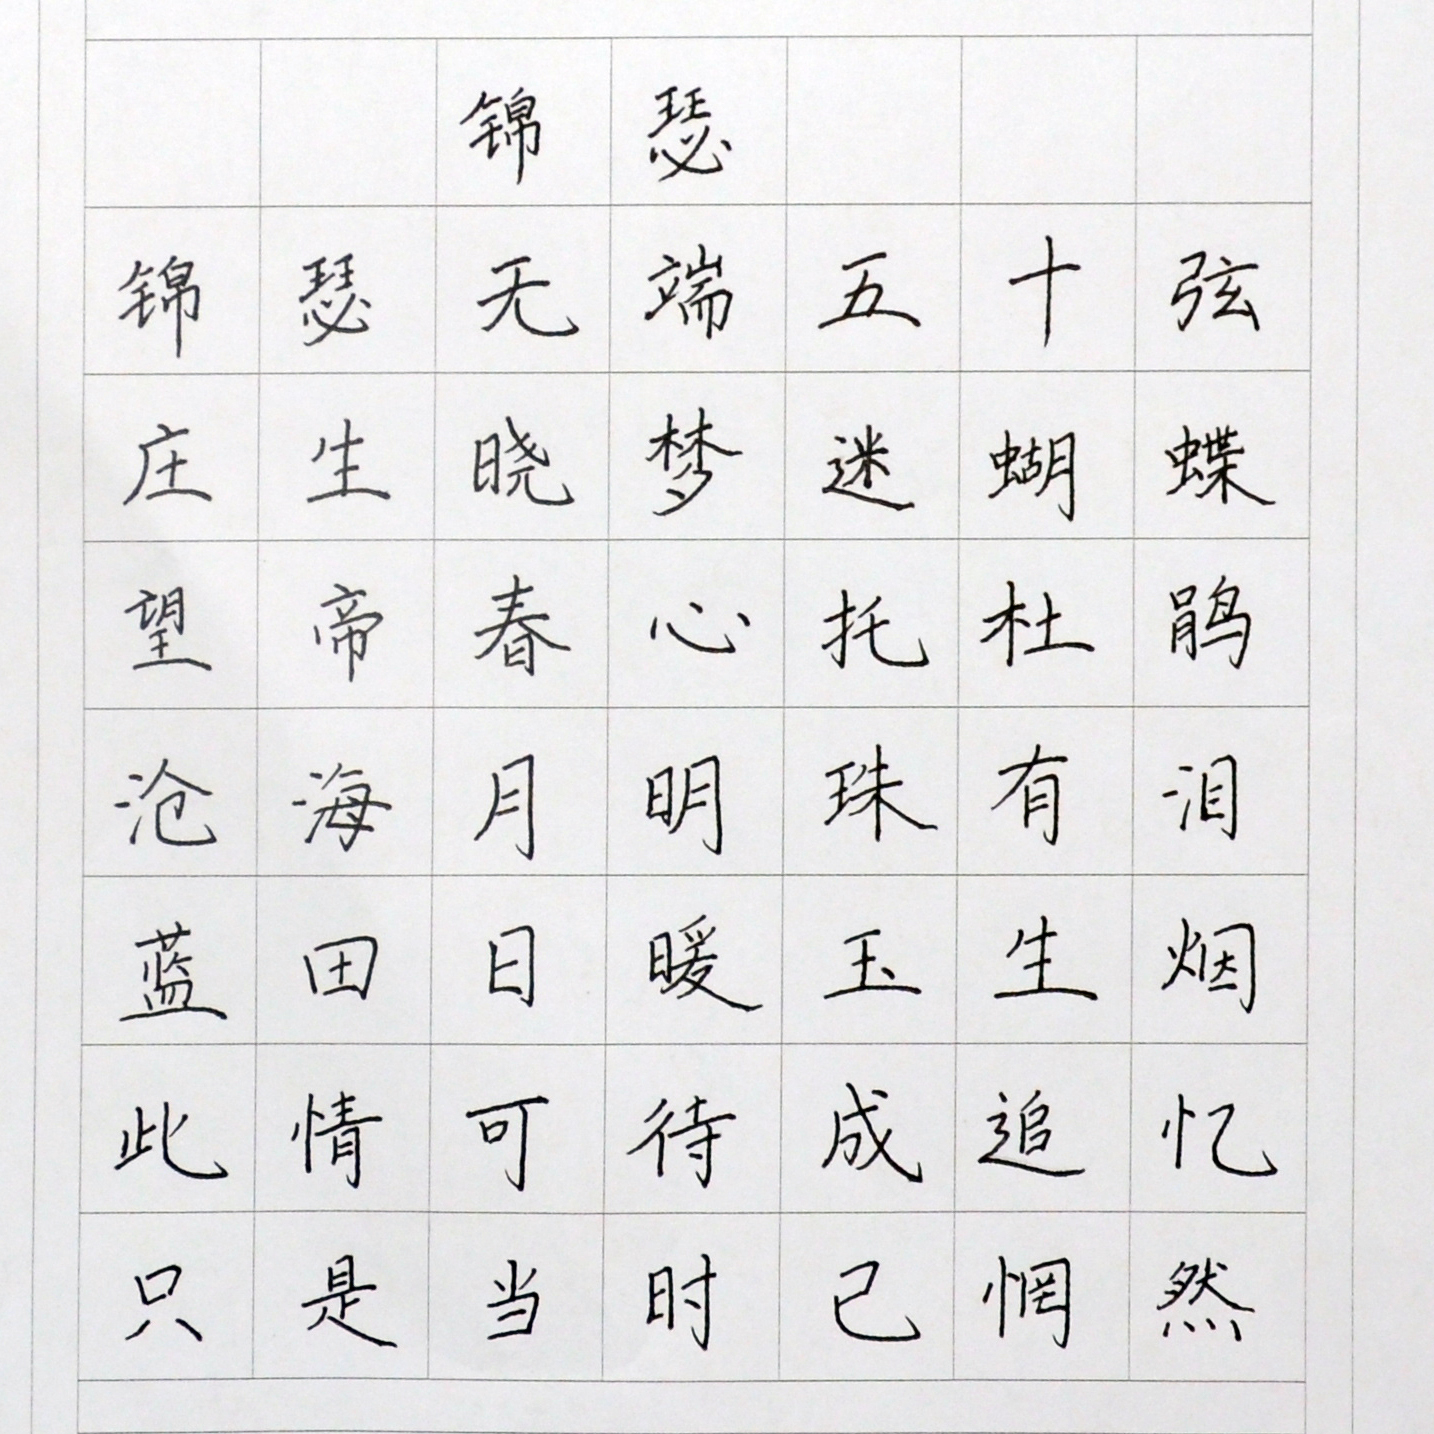 锦瑟
锦瑟无端五十弦
庄生晓梦迷蝴蝶
望帝春心托杜鹃
沧海月明珠有泪
蓝田日暖玉生烟
此情可待成追忆
只是当时已惘然